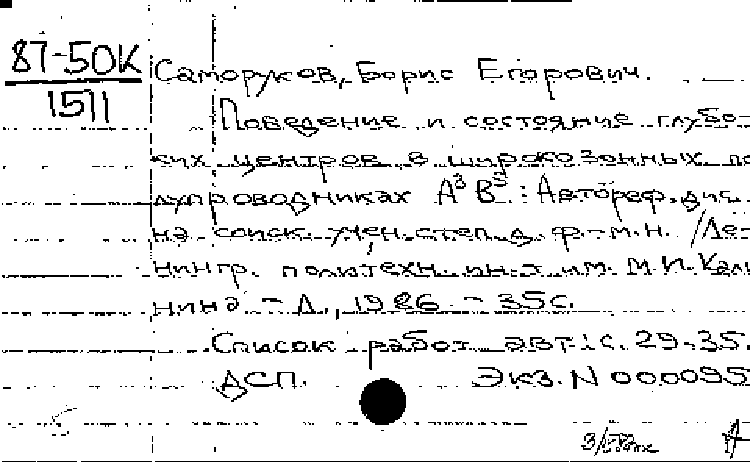 87-50К
1511
Саморуков, Борис Егорович.
Поведение и состояние глубо-
ких центров в широкозонных по-
лупроводниках А³В⁵ : Автореф. дис.
на соиск. учен. степ. д. ф.-м.н. /Ле-
нингр. политехн. ин-т им. М.И. Кали
нина - Л., 1986 - 35с.
Список работ авт.: с. 29-35.
ДСП. Экз. N 000095